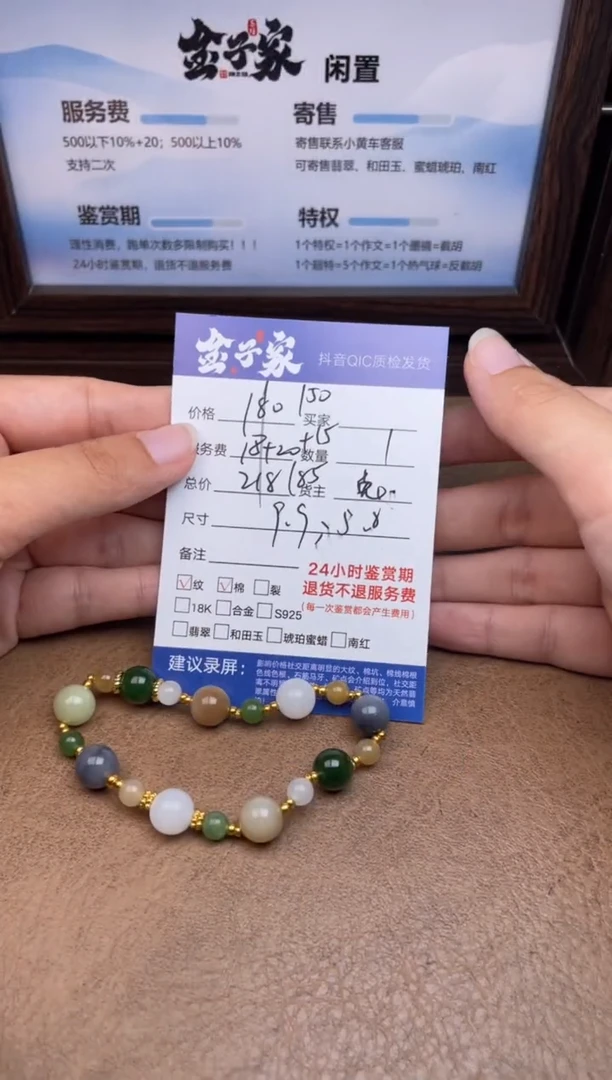 金子家 闲置
服务费
500以下10%+20；500以上10%
支持二次
寄售
寄售联系小黄车客服
可寄售翡翠、和田玉、蜜蜡琥珀、南红
鉴赏期
理性消费，跑单次数多限制购买！！！
24小时鉴赏期，退货不退服务费
特权
1个特权=1个作文=1个墨镜=截胡
1个超特=5个作文=1个热气球=反截胡
金子家 抖音QIC质检发货
价格 180 150 买家
服务费 18+20 +15 数量 1
总价 218 185 货主
尺寸 9.9, 5.8
备注
24小时鉴赏期
退货不退服务费
(每一次鉴赏都会产生费用)
纹 棉 裂
18K 合金 S925
翡翠 和田玉 琥珀蜜蜡 南红
建议录屏：
影响价格社交距离明显的大纹、棉坑、棉线棉根